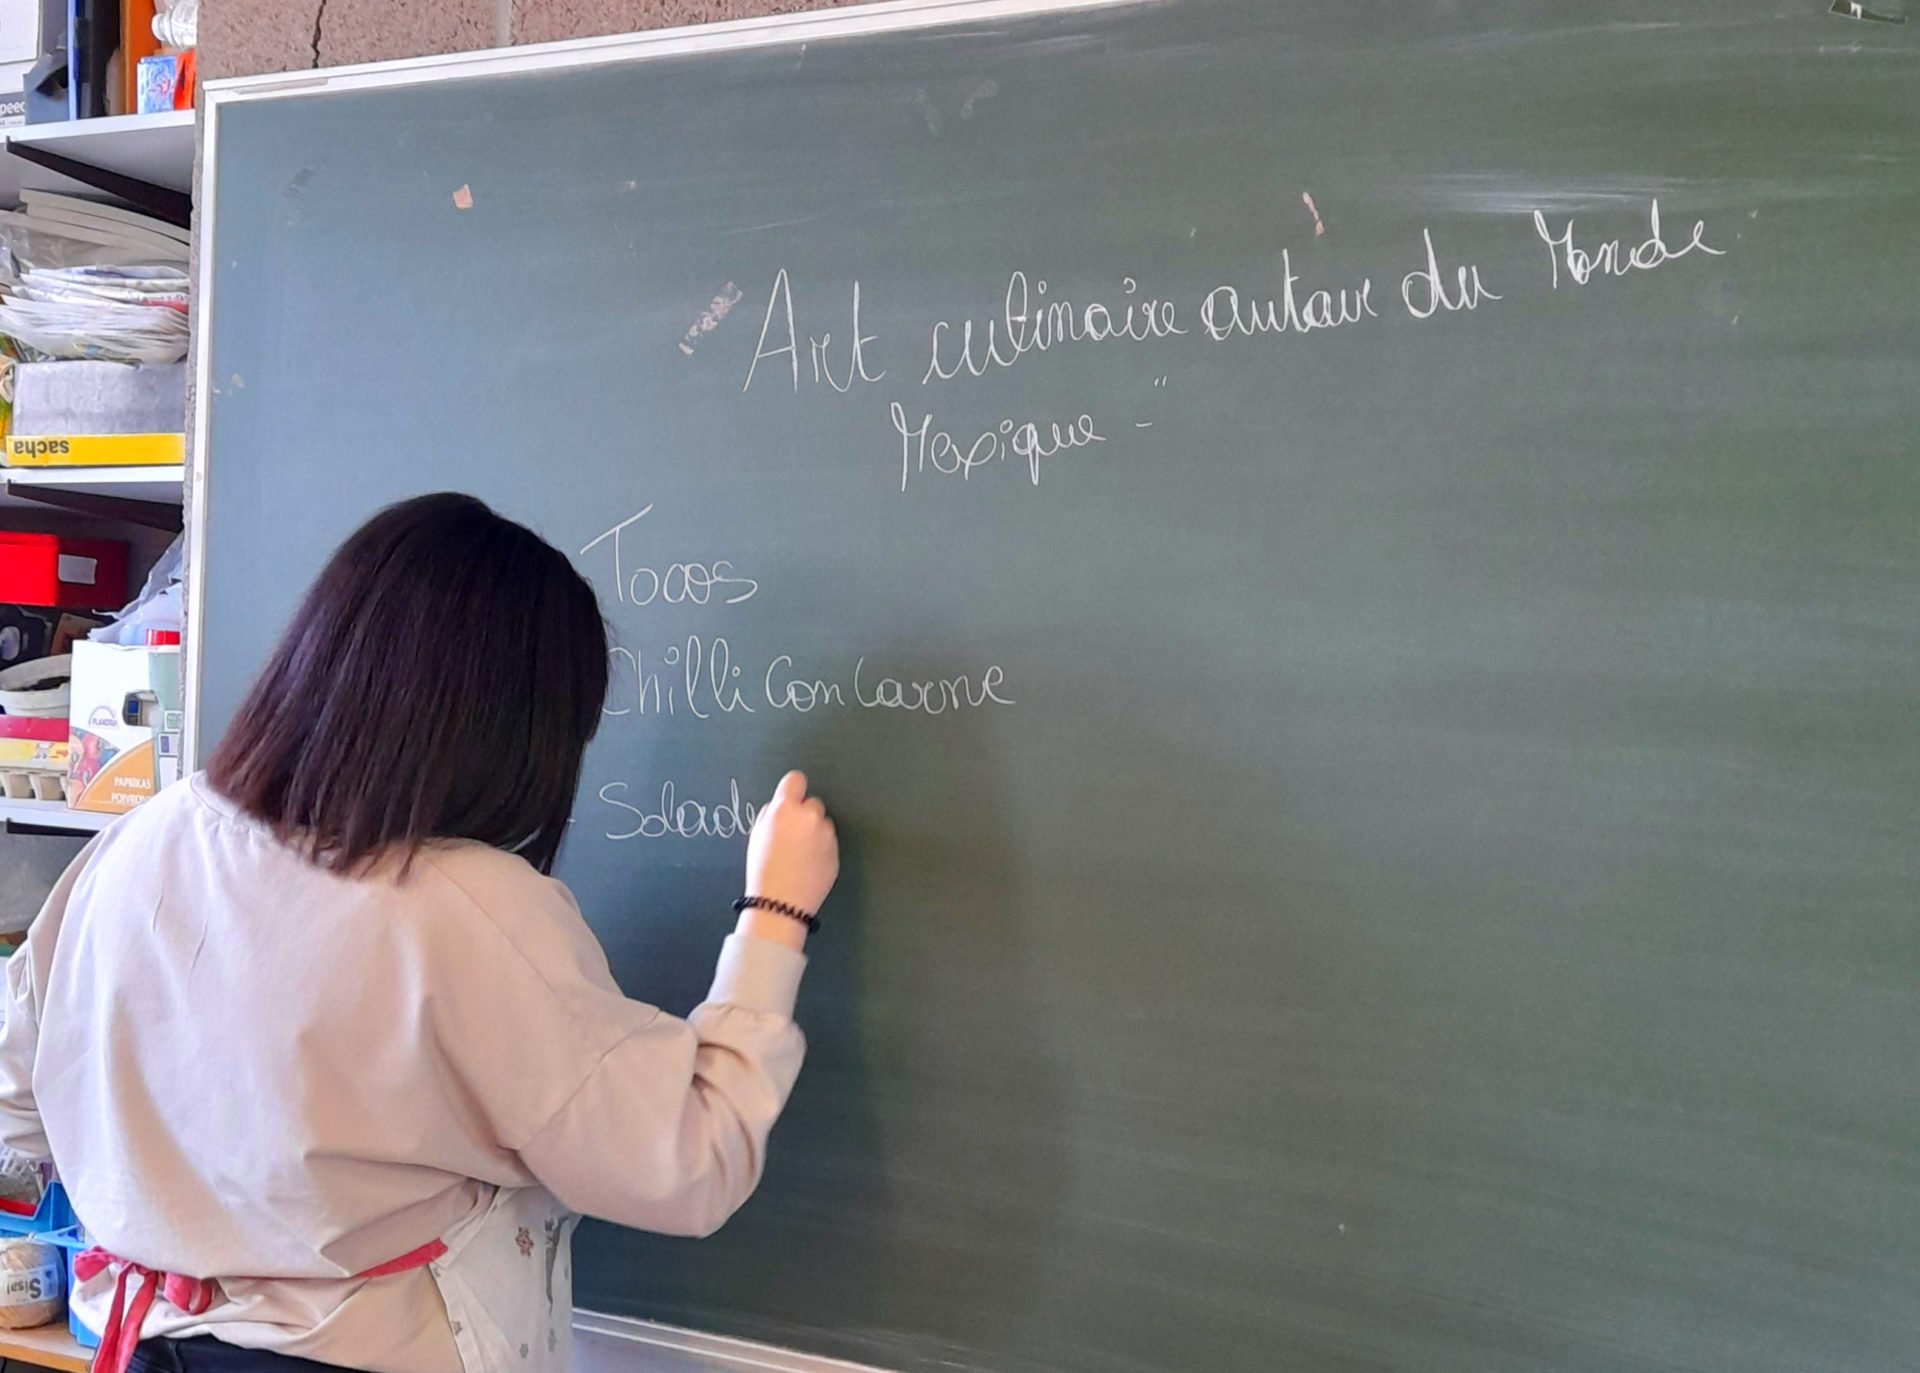 Art culinaire autour du Monde
Mexique - "
Tacos
Chilli Con Carne
- Salade
sacha
PAPRIKAS
POIVRONS
Sisal